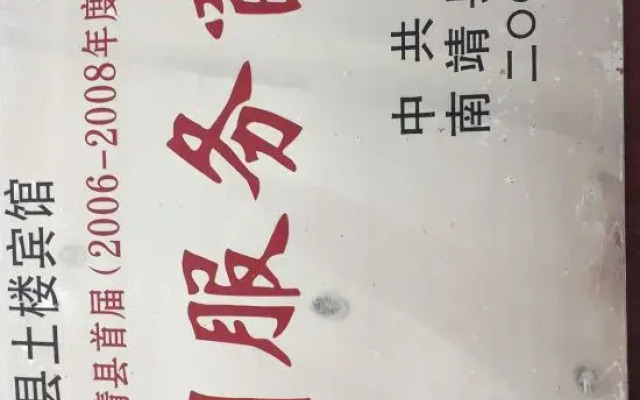 县土楼宾馆
县首届(2006-2008年度
服务
中共
南靖
二〇